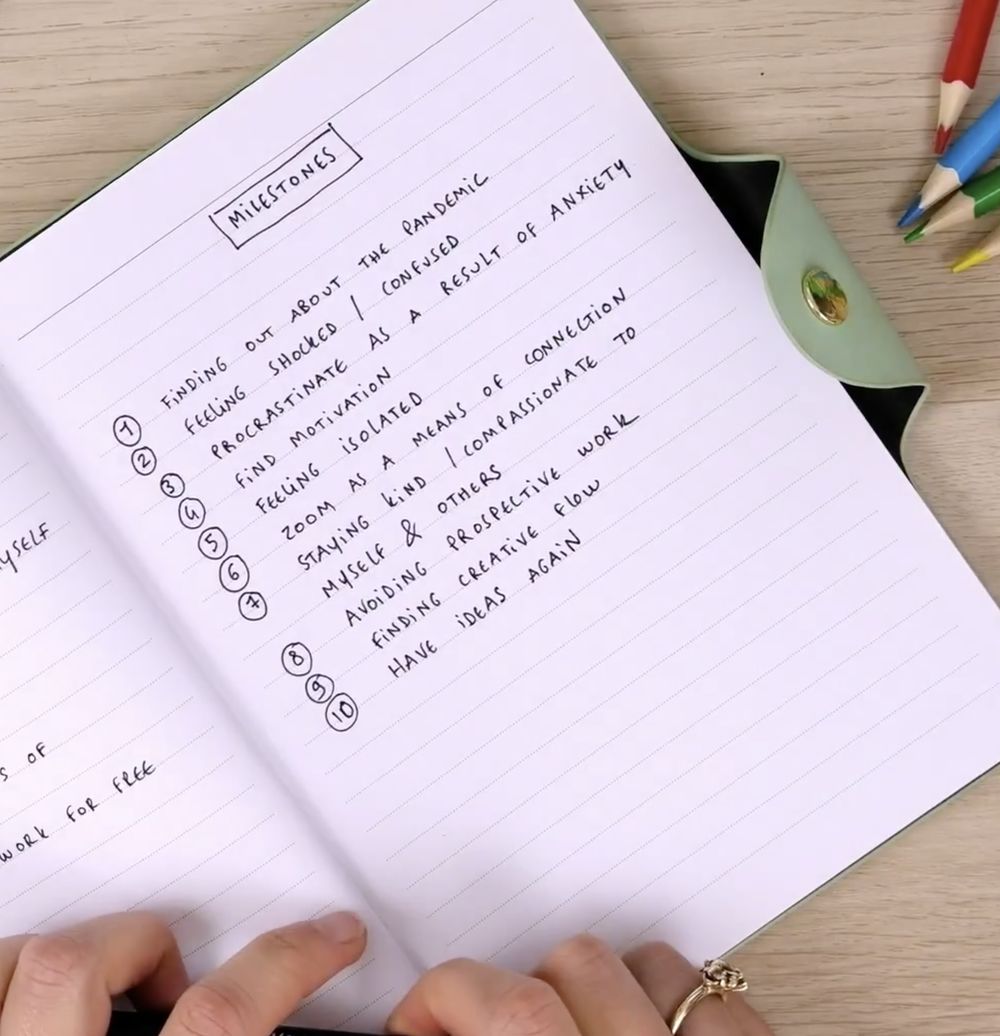 YSELF
S OF
WORK FOR FREE
MILESTONES
1 FINDING OUT ABOUT THE PANDEMIC
2 FEELING SHOCKED / CONFUSED
3 PROCRASTINATE AS A RESULT OF ANXIETY
4 FIND MOTIVATION
5 FEELING ISOLATED
6 ZOOM AS A MEANS OF CONNECTION
7 STAYING KIND / COMPASSIONATE TO
MYSELF & OTHERS
8 AVOIDING PROSPECTIVE WORK
9 FINDING CREATIVE FLOW
10 HAVE IDEAS AGAIN